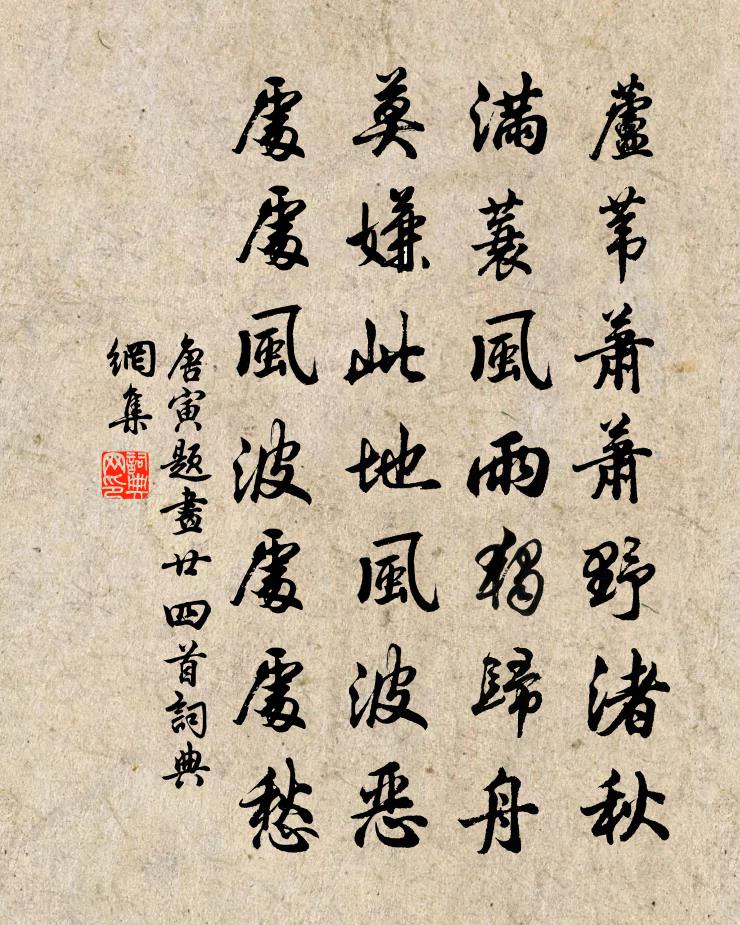 蘆葦蕭蕭野渚秋
滿蓑風雨獨歸舟
莫嫌此地風波惡
處處風波處處愁
唐寅題畫廿四首詞典
網集
詞典
网印